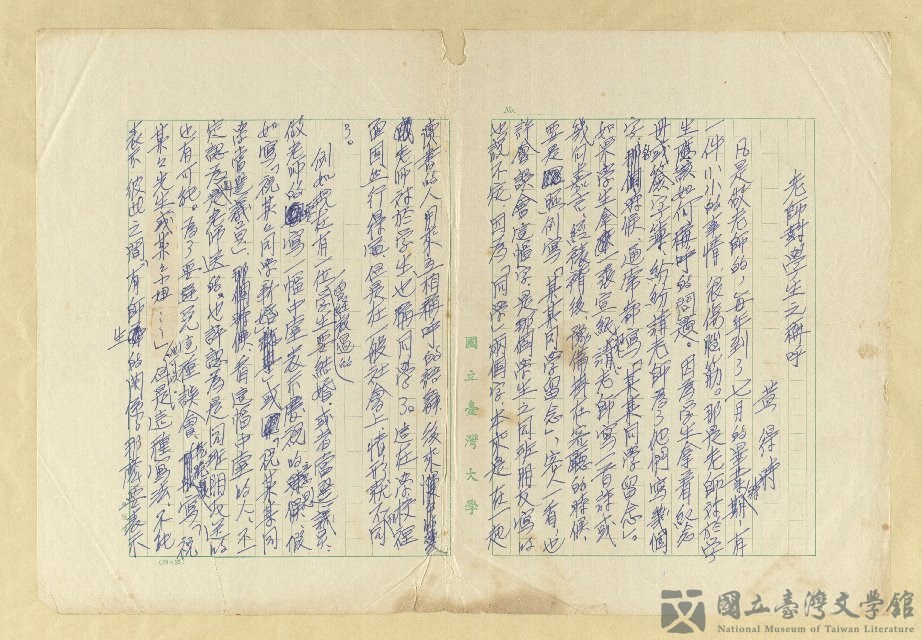 No.
老師對學生之稱呼
黃得時
凡是做老師的,每年到了七月的畢業期,有
一件小小的事情,很傷腦筋。那是老師對於學
生應該如何稱呼的問題。因為學生拿着紀念
冊或簽字簿,紛紛請老師為了他們寫幾個
字,那個時候,通常都寫「某某同學留念」。
如果學生拿一張宣紙請老師寫一首詩或
幾句嘉言,經裱褙後掛在客廳的時候,
要是寫「某某同學留念」,客人一看,也
許會誤會這幅字是那個學生之同班朋友寫的
也說不定,因為「同學」兩個字本來是在一起
讀書的人用來互相稱呼的語辭,後來
老師對於學生也稱同學了。這在學校裡
面固也行得通,但是在一般社會上,情形就不同
了。
例如現在有一位學生要結婚或者當選議員,
曾經教過的
做老師的寫一幅中堂表示慶祝的意思,假
如寫「祝某某同學新婚」或「祝某某同
學當選議員」,那個時候看這幅中堂的人,不一
定認為是老師送的。也許認為是同班朋友送的
也有可能。為了要避免這種誤會,寫「祝
某某先生或某某小姐……」但是這種寫法,不能
表示彼此之間,有師生的關係,那麼要表示
國立臺灣大學
國立臺灣文學館
National Museum of Taiwan Literature